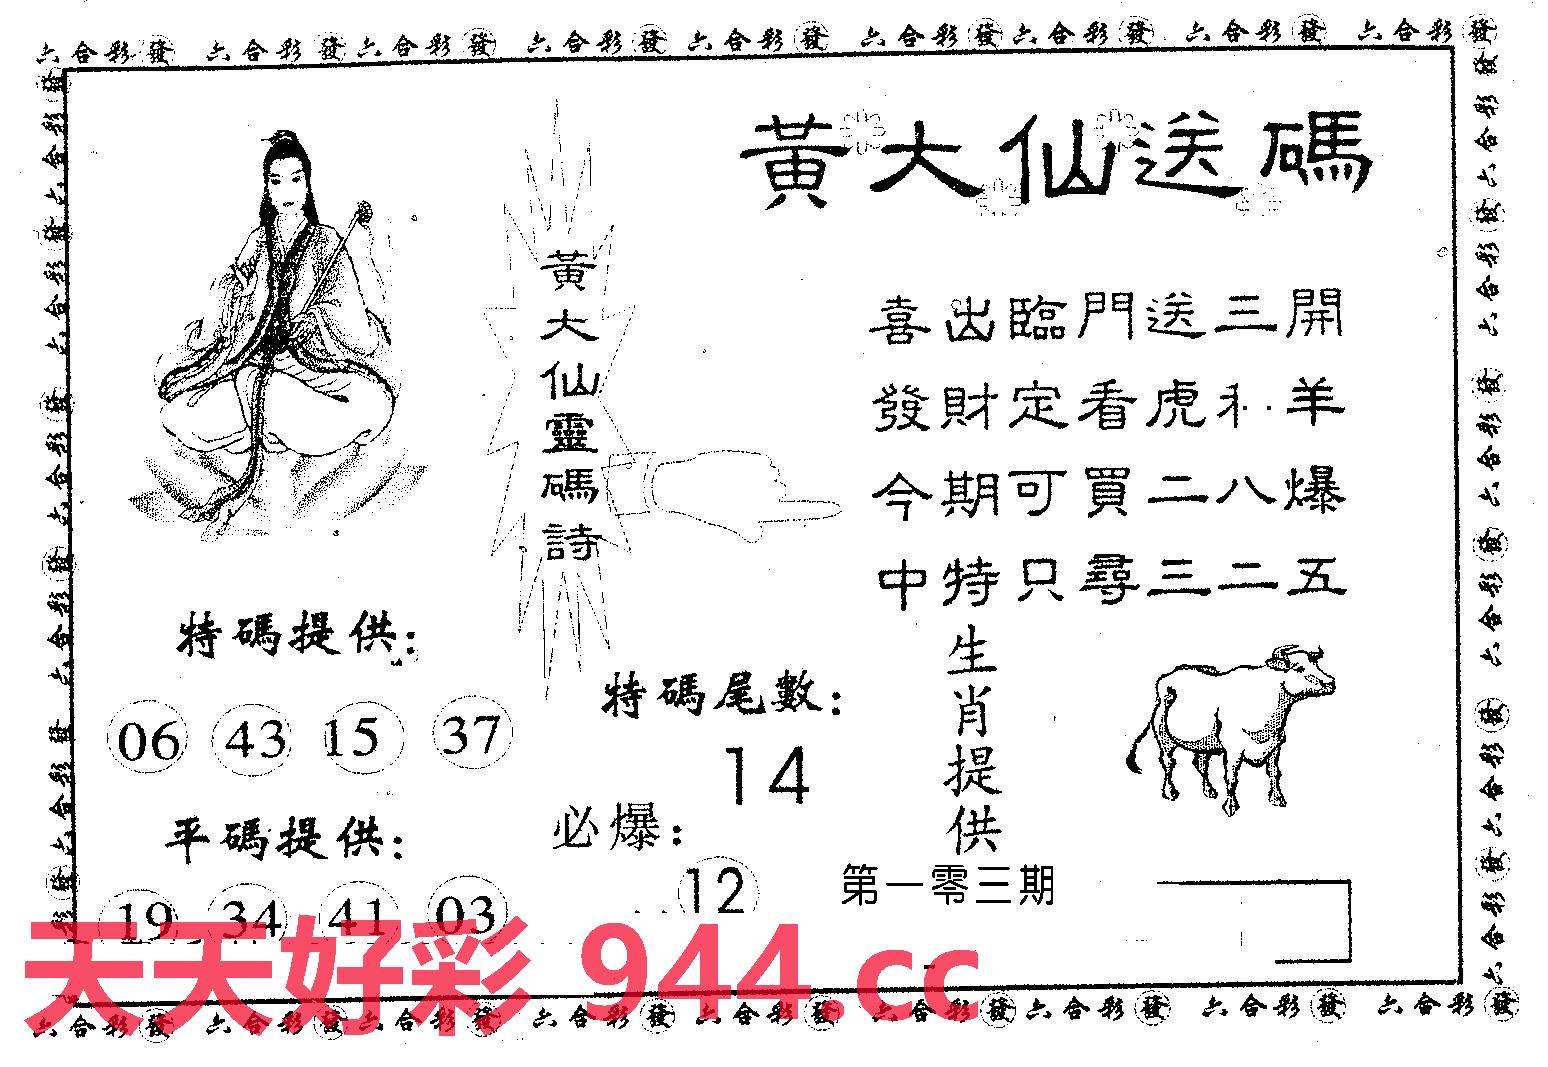 六合彩發 六合彩發 六合彩發 六合彩發 六合彩發 六合彩發 六合彩發 六合彩發 六合彩發
黃大仙送碼
黃大仙靈碼詩
喜出臨門送三開
發財定看虎 羊
今期可買二八爆
中特只尋三二五
特碼提供：
06 43 15 37
平碼提供：
19 34 41 03
特碼尾數：
14
必爆：
12
生肖提供
第一零三期
天天好彩 944.cc
六合彩發 六合彩發 六合彩發 六合彩發 六合彩發 六合彩發 六合彩發 六合彩發 六合彩發